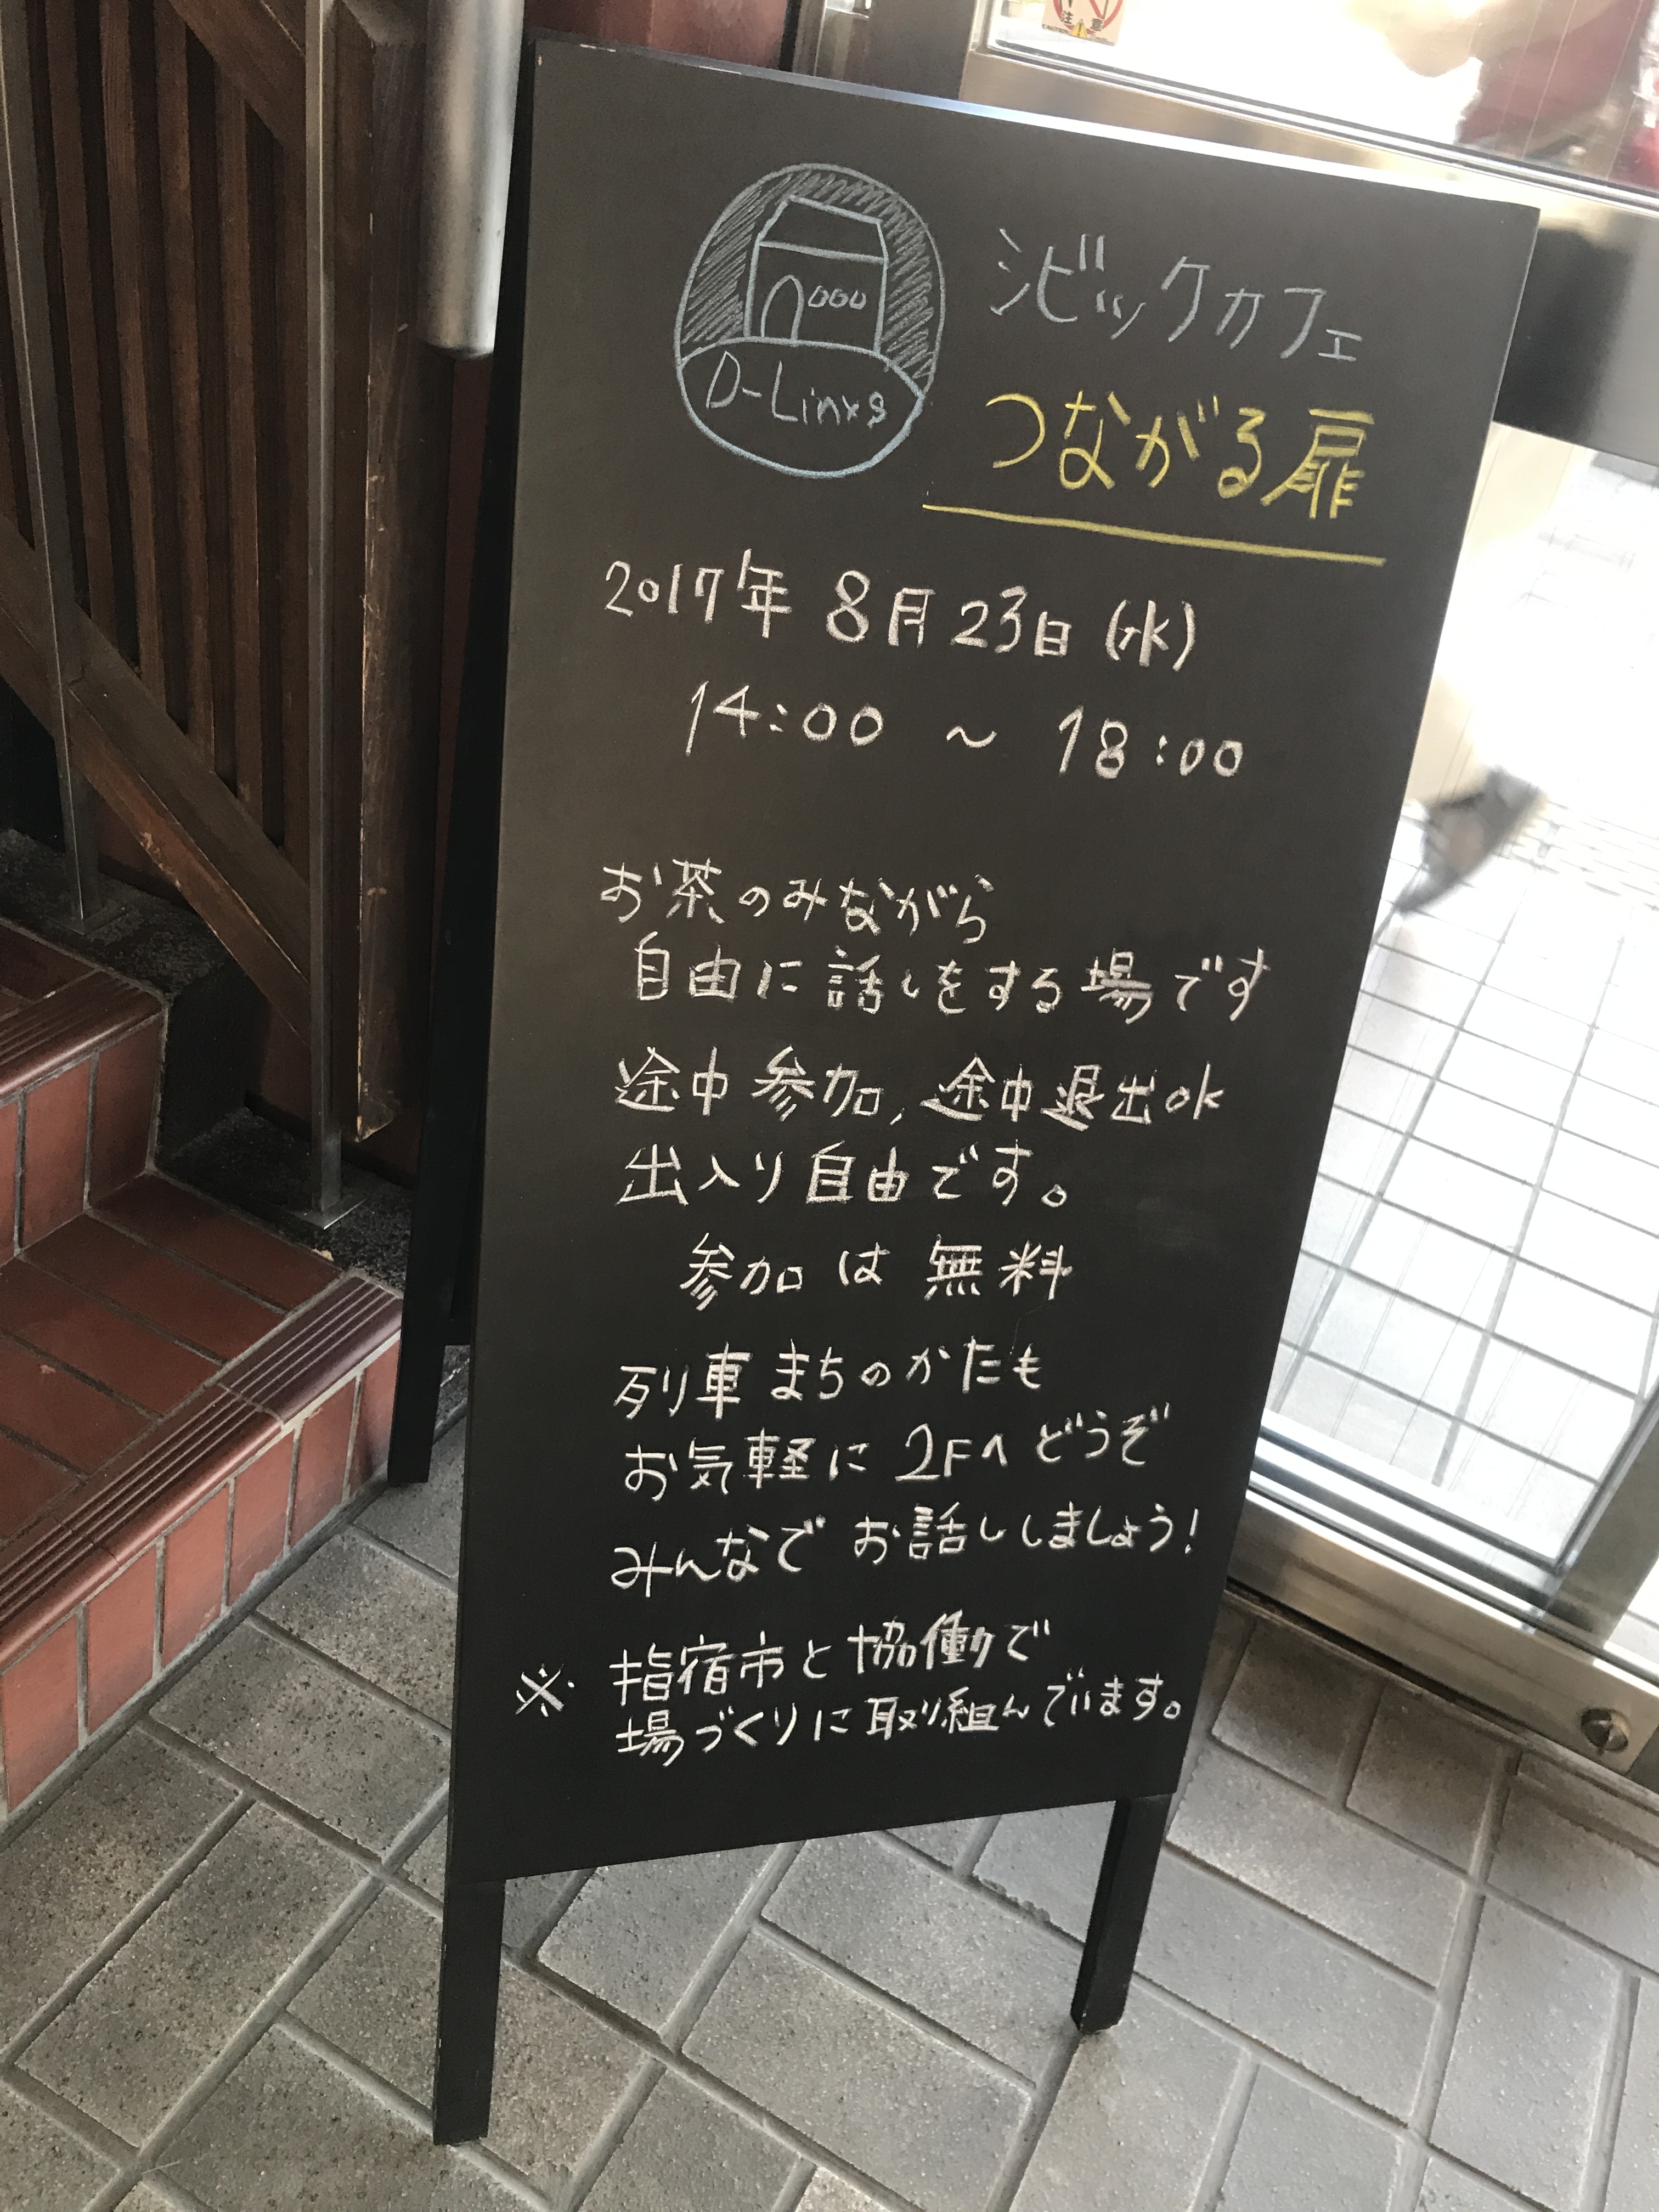 注意
D-Linxs
シビックカフェ
つながる扉
2017年 8月23日(水)
14:00 ～ 18:00
お茶のみながら
自由に話しをする場です
途中参加、途中退出ok
出入り自由です。
参加は無料
列車まちのかたも
お気軽に2Fへどうぞ
みんなでお話ししましょう!
※ 指宿市と協働で
場づくりに取り組んでいます。